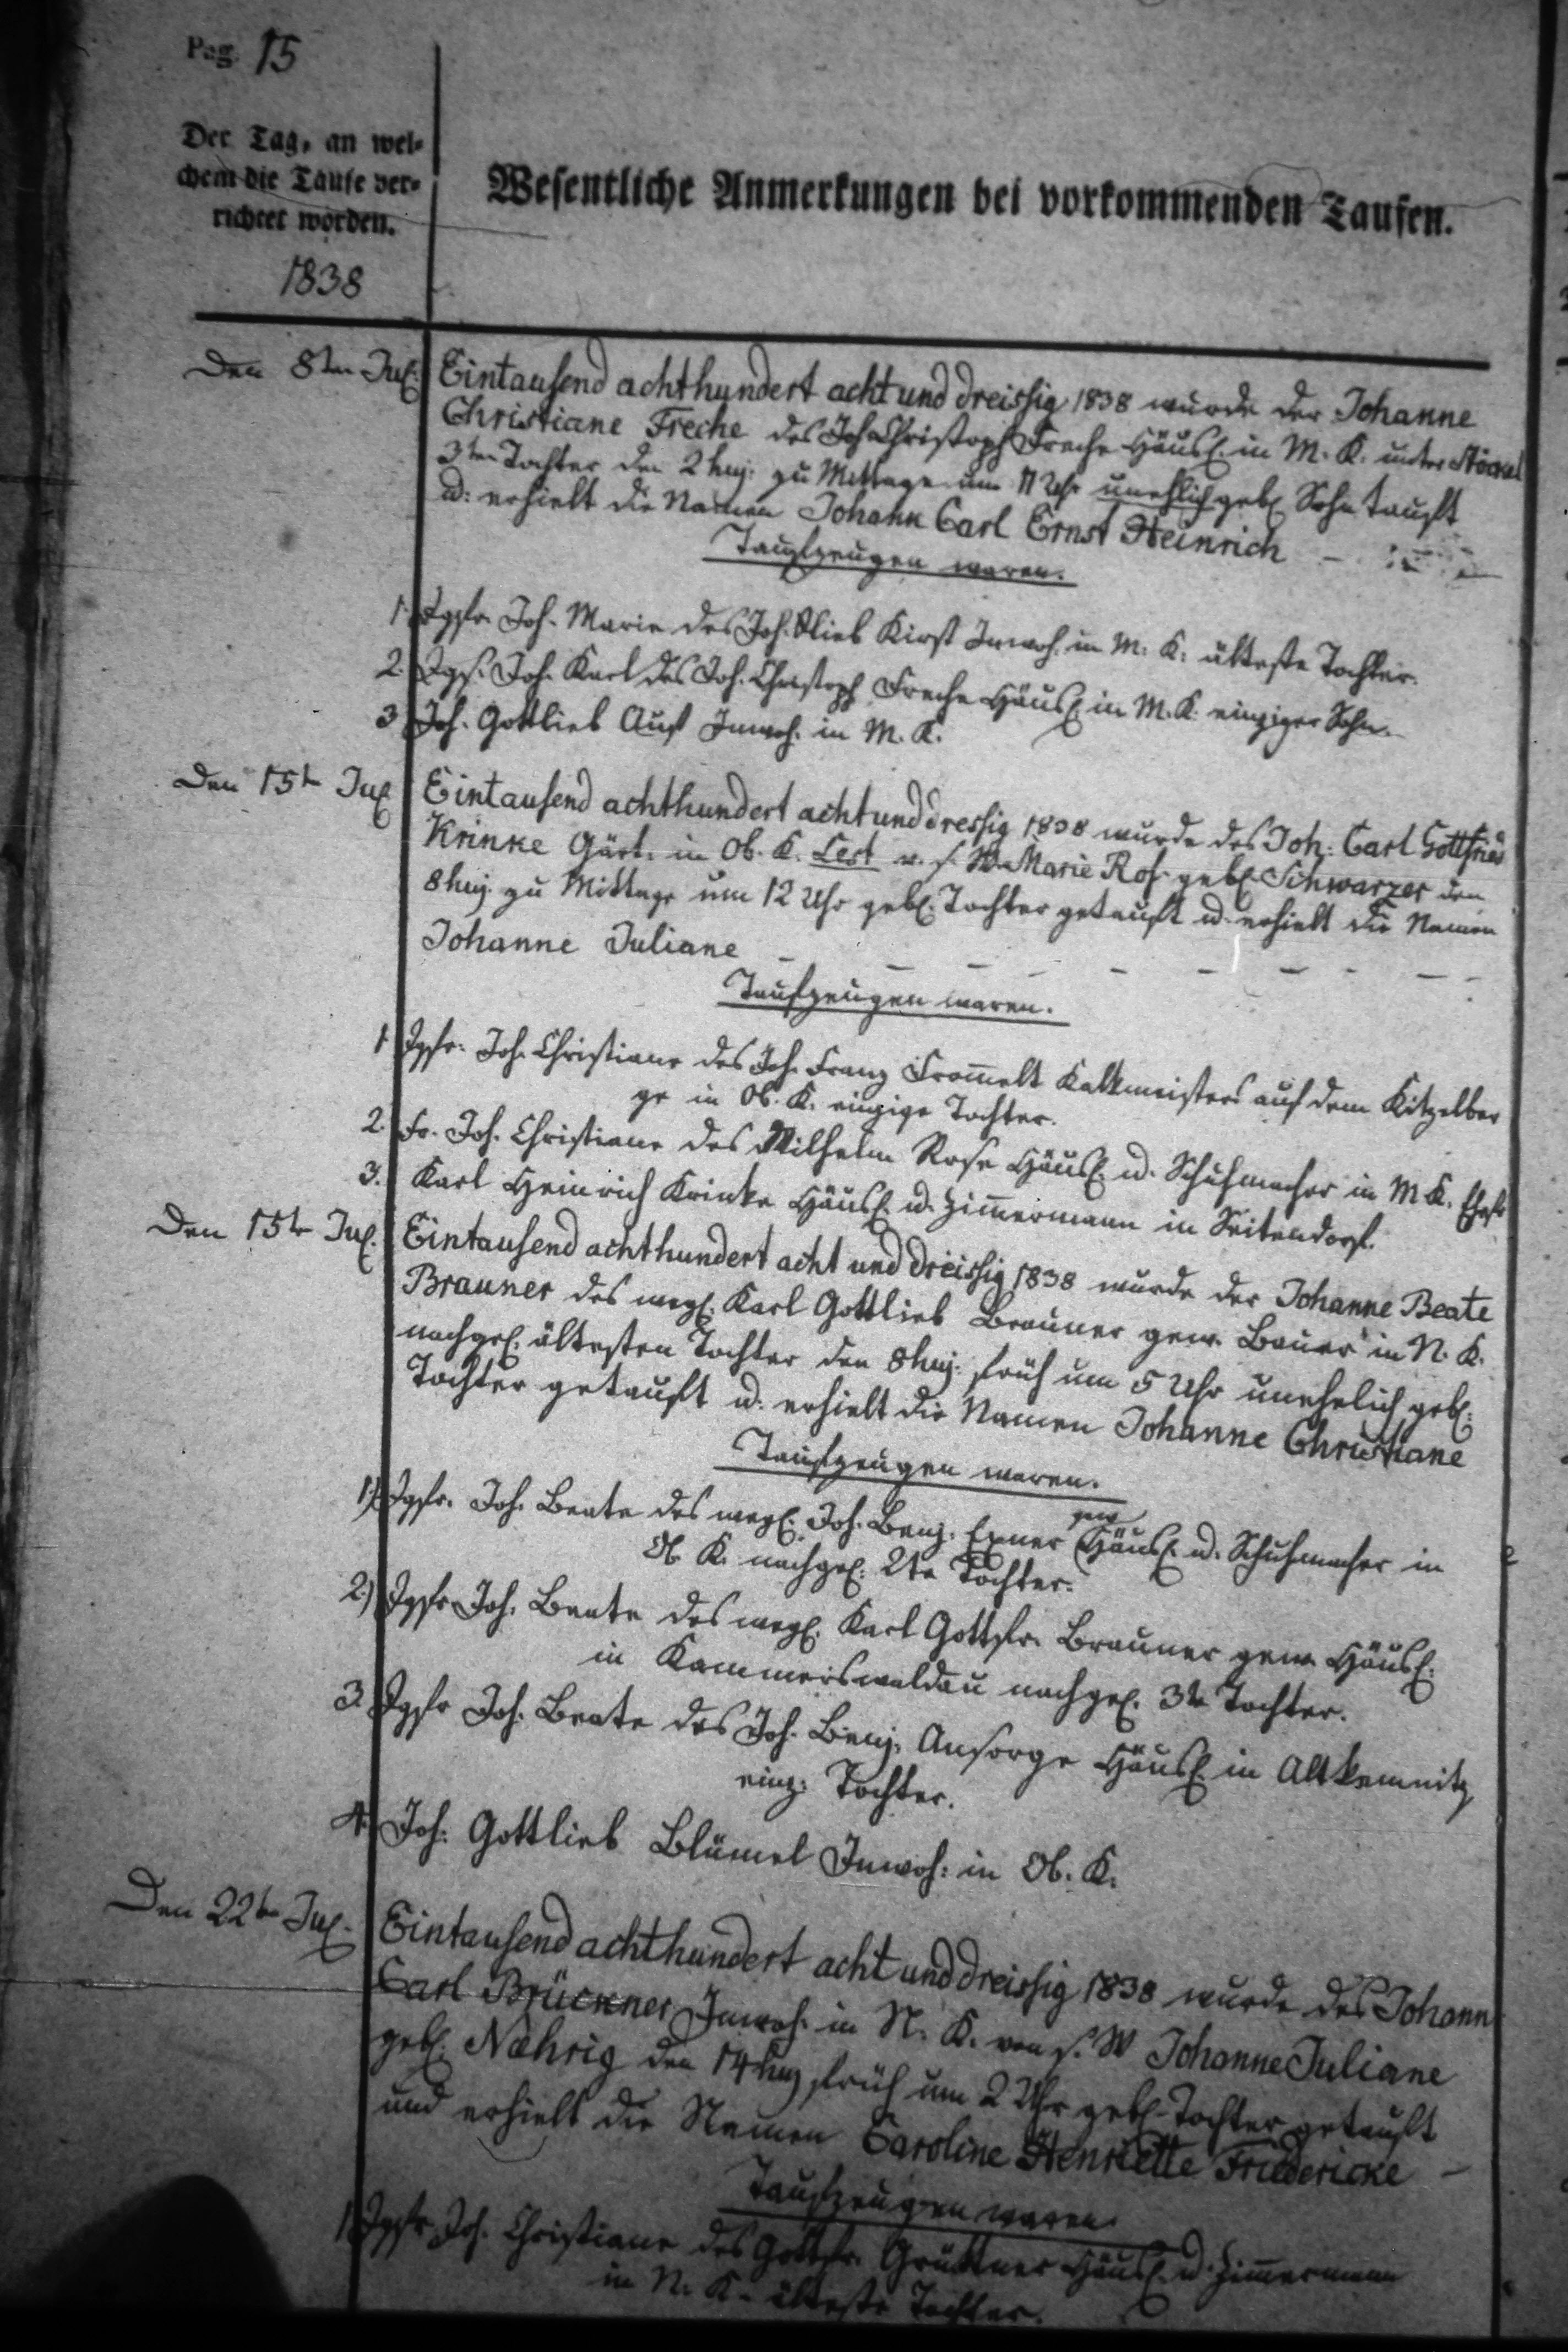 Pag. 15
Der Tag, an wel-
chem die Taufe ver-
richtet worden.
1838
Wesentliche Anmerkungen bei vorkommenden Taufen.
Den 8ten Jul.
Eintausend achthundert acht und dreissig 1838 wurde der Johanne
Christiane Freche des Joh. Christoph Freche Häusl. in M. K. unter
3ten Tochter den 2 huj. zu Mittage um 11 Uhr unehlich geb. Sohn tauft
u. erhielt die Namen Johann Carl Ernst Heinrich
Taufzeugen waren.
1. Jgfr. Joh. Marie des Joh. Glieb Kirst Inwoh. in M. K. älteste Tochter.
2. Jgs. Joh. Karl des Joh. Christoph Freche Häusl. in M. K. einziger Sohn.
3 Joh. Gottlieb Aust Inwoh. in M. K.
Den 15ten Jul.
Eintausend achthundert acht und dressig 1838 wurde des Joh. Carl Gottfried
Krinke Gärt. in Ob. K. v. s. W. Marie Ros. geb. Schwarzer den
8 huj. zu Mittage um 12 Uhr geb. Tochter getauft u. erhielt die Namen
Johanne Juliane
Taufzeugen waren.
1. Jgfr. Joh. Christiane des Joh. Franz From̄elt Kalkmeisters auf dem Kitzelber
ge in Ob. K. einzige Tochter.
2. Fr. Joh. Christiane des Wilhelm Rose Häusl. u. Schuhmacher in M K. Ehefr
3. Karl Heinrich Krinke Häusl. u. Zim̄ermann in Seitendorf.
Den 15te Jul.
Eintausend achthundert acht und dreissig 1838 wurde der Johanne Beate
Brauner des weyl. Karl Gottlieb Brauner gew. Bauer in N. K.
nachgel. ältesten Tochter den 8 huj. früh um 5 Uhr unehelich geb.
Tochter getauft u. erhielt die Namen Johanne Christiane
Taufzeugen waren.
1.) Jgfr. Joh. Beate des weyl. Joh. Benj. Exner gew Häusl. u. Schuhmacher in
Ob. K. nachgel. 2te Tochter.
2) Jgfr Joh. Beate des weyl. Karl Gottfr. Brauner gew. Häusl.
in Kammerswaldau nachgel. 3te Tochter.
3. Jgfr Joh. Beate des Joh. Benj. Ansorge Häusl. in Altkemnitz
einz. Tochter.
4. Joh. Gottlieb Blümel Inwoh. in Ob. K.
Den 22ten Jul.
Eintausend achthundert acht und dreissig 1838 wurde des Johann
Carl Brückner Inwoh. in N. K. von s. W Johanne Juliane
geb. Næhrig den 14 huj früh um 2 Uhr geb. Tochter getauft
und erhielt die Namen Caroline Henriette Friedericke
Taufzeugen waren
1. Jgfr Joh. Christiane des Gottfr. Grüttner Häusl. u. Zim̄ermann
in N. K. älteste Tochter.